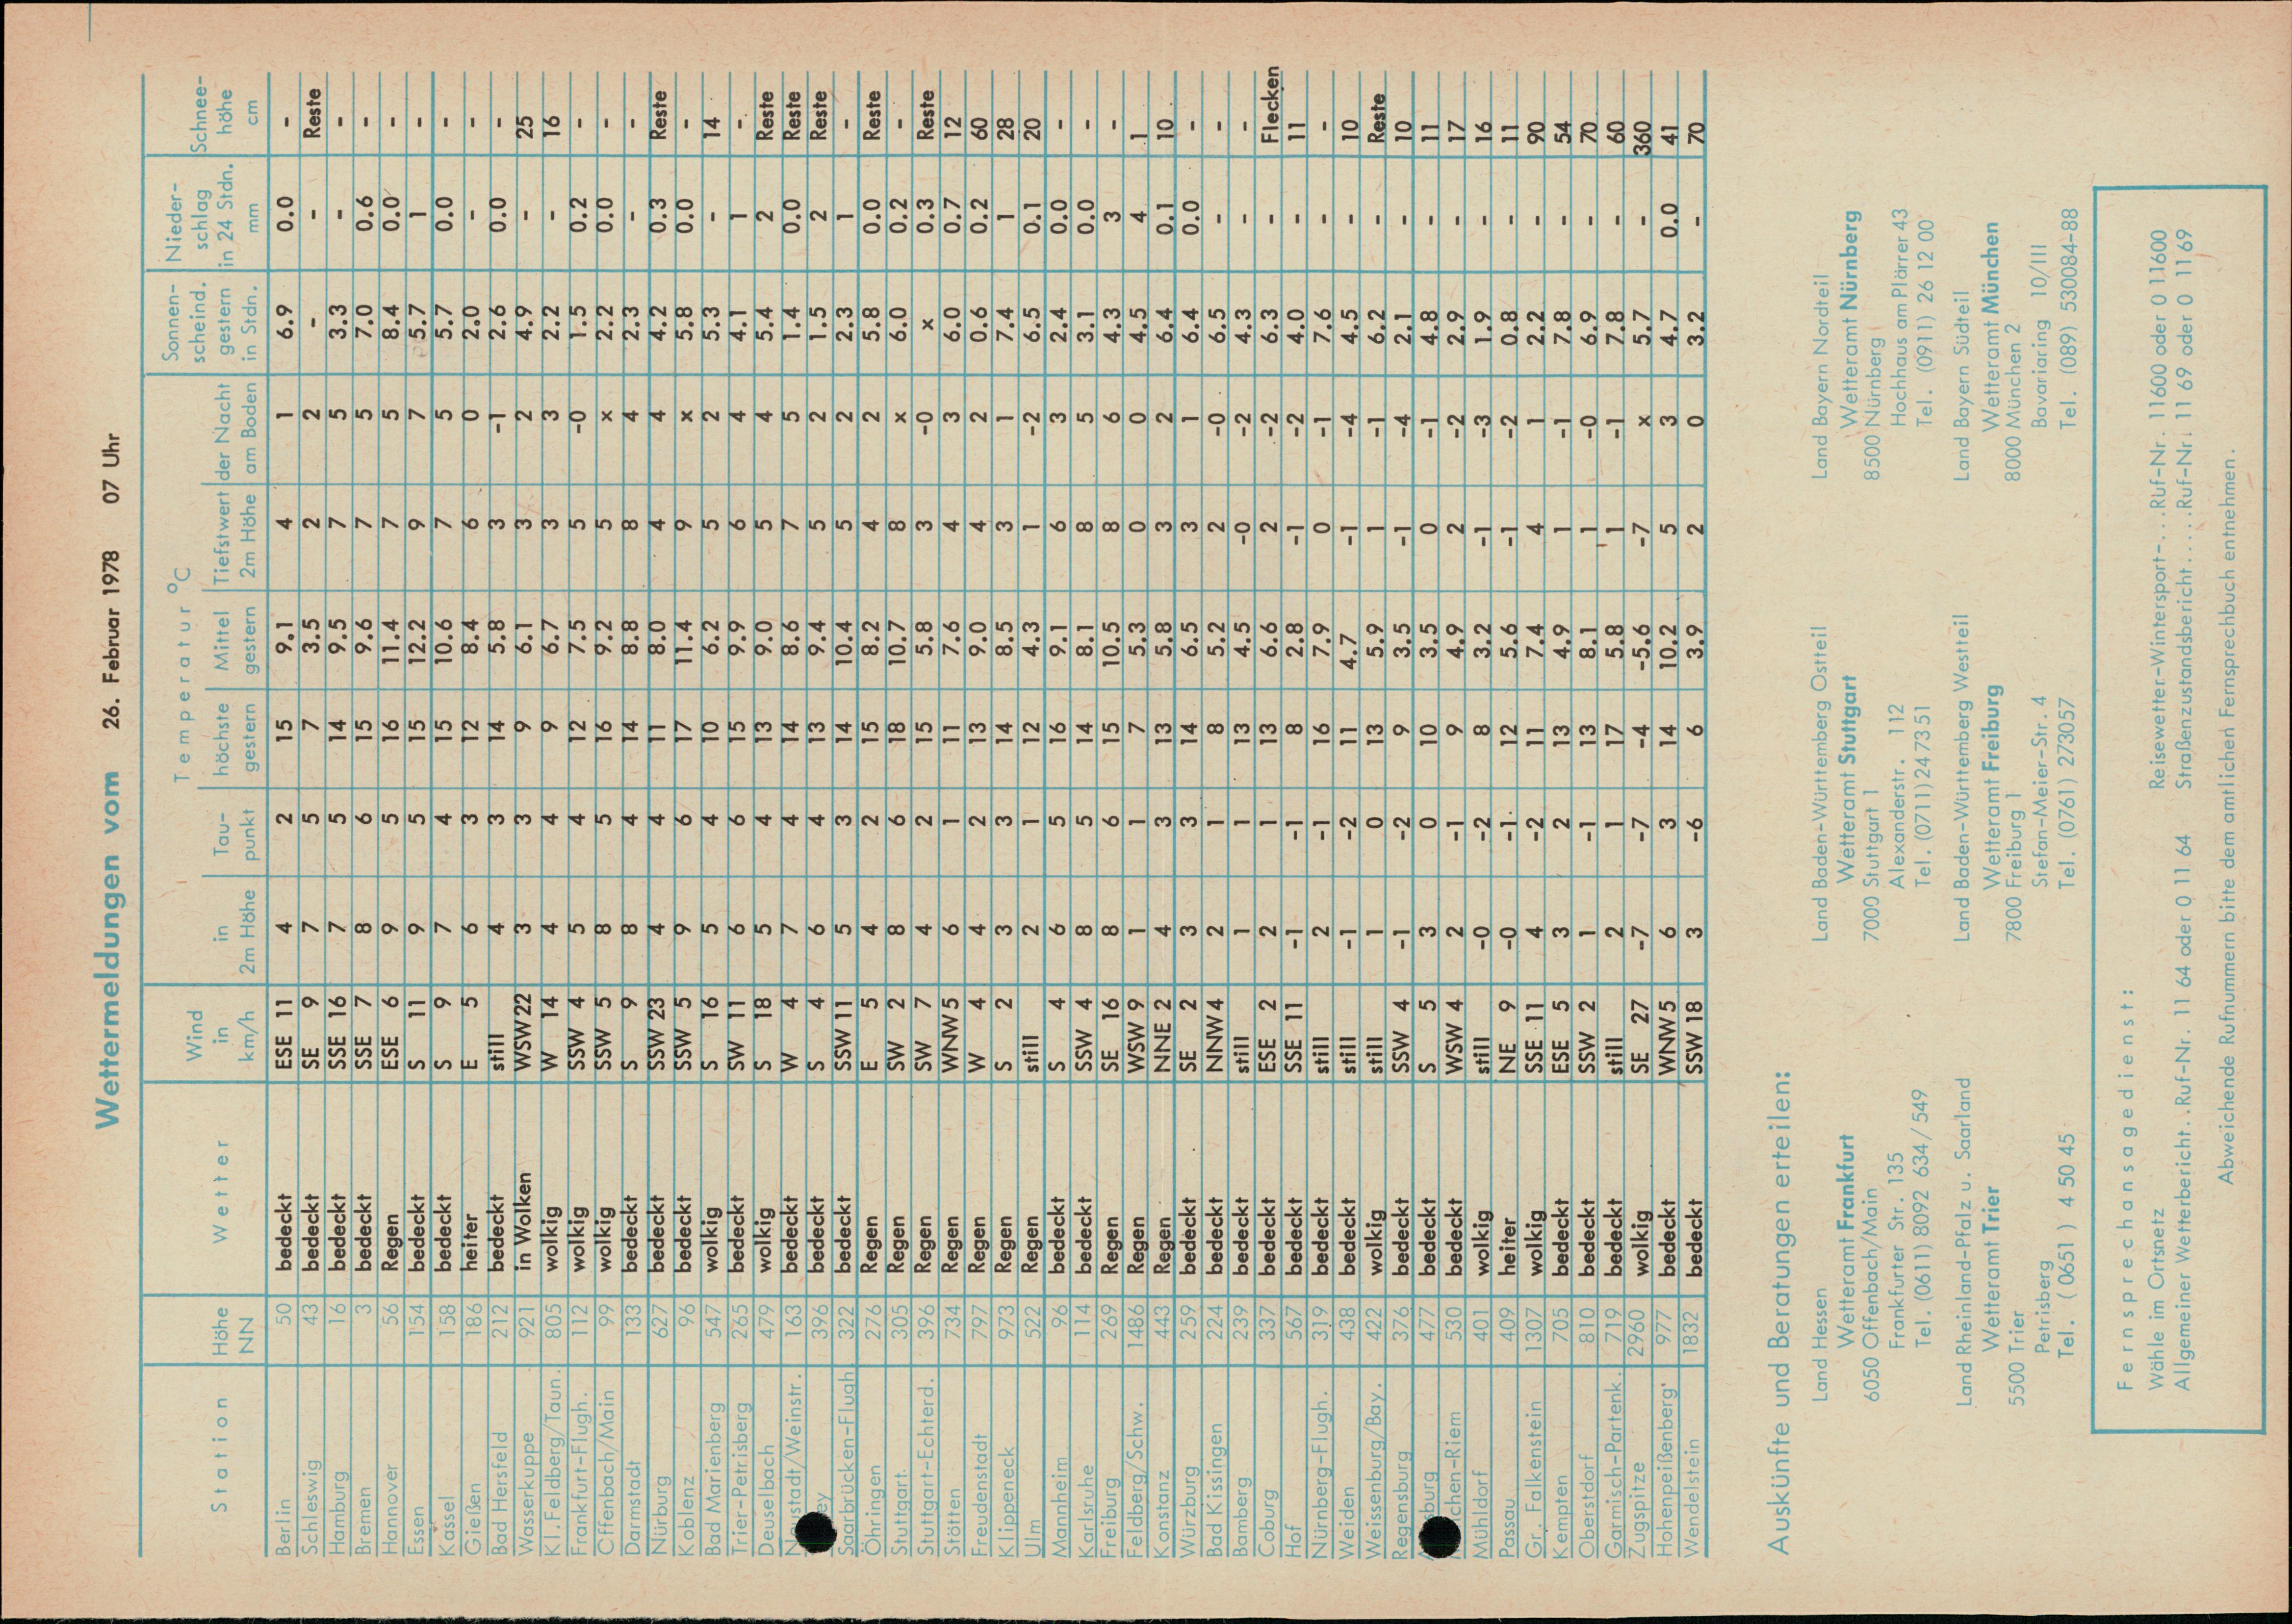 Wettermeldungen vom 26. Februar 1978 07 Uhr
Station Höhe NN Wetter Wind in km/h Temperatur °C Sonnen-scheind. gestern in Stdn. Nieder-schlag in 24 Stdn. mm Schnee-höhe cm
in 2m Höhe Tau-punkt höchste gestern Mittel gestern Tiefstwert der Nacht 2m Höhe am Boden
Berlin 50 bedeckt ESE 11 4 2 15 9.1 4 1 6.9 0.0 -
Schleswig 43 bedeckt SE 9 7 5 7 3.5 2 2 - - Reste
Hamburg 16 bedeckt SSE 16 7 5 14 9.5 7 5 3.3 - -
Bremen 3 bedeckt SSE 7 8 6 15 9.6 7 5 7.0 0.6 -
Hannover 56 Regen ESE 6 9 5 16 11.4 7 5 8.4 0.0 -
Essen 154 bedeckt S 11 9 5 15 12.2 9 7 5.7 1 -
Kassel 158 bedeckt S 9 7 4 15 10.6 7 5 5.7 0.0 -
Gießen 186 heiter E 5 6 3 12 8.4 6 0 2.0 - -
Bad Hersfeld 212 bedeckt still 4 3 14 5.8 3 -1 2.6 0.0 -
Wasserkuppe 921 in Wolken WSW 22 3 3 9 6.1 3 2 4.9 - 25
Kl.Feldberg/Taun. 805 wolkig W 14 4 4 9 6.7 3 3 2.2 - 16
Frankfurt-Flugh. 112 wolkig SSW 4 5 4 12 7.5 5 -0 1.5 0.2 -
Offenbach/Main 99 wolkig SSW 5 8 5 16 9.2 5 x 2.2 0.0 -
Darmstadt 133 bedeckt S 9 8 4 14 8.8 8 4 2.3 - -
Nürburg 627 bedeckt SSW 23 4 4 11 8.0 4 4 4.2 0.3 Reste
Koblenz 96 bedeckt SSW 5 9 6 17 11.4 9 x 5.8 0.0 -
Bad Marienberg 547 wolkig S 16 5 4 10 6.2 5 2 5.3 - 14
Trier-Petrisberg 265 bedeckt SW 11 6 6 15 9.9 6 4 4.1 1 -
Deuselbach 479 wolkig S 18 5 4 13 9.0 5 4 5.4 2 Reste
Neustadt/Weinstr. 163 bedeckt W 4 7 4 14 8.6 7 5 1.4 0.0 Reste
ey 396 bedeckt S 4 6 4 13 9.4 5 2 1.5 2 Reste
Saarbrücken-Flugh 322 bedeckt SSW 11 5 3 14 10.4 5 2 2.3 1 -
Öhringen 276 Regen E 5 4 2 15 8.2 4 2 5.8 0.0 Reste
Stuttgart. 305 Regen SW 2 8 6 18 10.7 8 x 6.0 0.2 -
Stuttgart-Echterd. 396 Regen SW 7 4 2 15 5.8 3 -0 x 0.3 Reste
Stötten 734 Regen WNW 5 6 1 11 7.6 4 3 6.0 0.7 12
Freudenstadt 797 Regen W 4 4 2 13 9.0 4 2 0.6 0.2 60
Klippeneck 973 Regen S 2 3 3 14 8.5 3 1 7.4 1 28
Ulm 522 Regen still 2 1 12 4.3 1 -2 6.5 0.1 20
Mannheim 96 bedeckt S 4 6 5 16 9.1 6 3 2.4 0.0 -
Karlsruhe 114 bedeckt SSW 4 8 5 14 8.1 8 5 3.1 0.0 -
Freiburg 269 Regen SE 16 8 6 15 10.5 8 6 4.3 3 -
Feldberg/Schw. 1486 Regen WSW 9 1 1 7 5.3 0 0 4.5 4 1
Konstanz 443 Regen NNE 2 4 3 13 5.8 3 2 6.4 0.1 10
Würzburg 259 bedeckt SE 2 3 3 14 6.5 3 1 6.4 0.0 -
Bad Kissingen 224 bedeckt NNW 4 2 1 8 5.2 2 -0 6.5 - -
Bamberg 239 bedeckt still 1 1 13 4.5 -0 -2 4.3 - -
Coburg 337 bedeckt ESE 2 2 1 13 6.6 2 -2 6.3 - Flecken
Hof 567 bedeckt SSE 11 -1 -1 8 2.8 -1 -2 4.0 - 11
Nürnberg-Flugh. 319 bedeckt still 2 -1 16 7.9 0 -1 7.6 - -
Weiden 438 bedeckt still -1 -2 11 4.7 -1 -4 4.5 - 10
Weissenburg/Bay. 422 wolkig still 1 0 13 5.9 1 -1 6.2 - Reste
Regensburg 376 bedeckt SSW 4 -1 -2 9 3.5 -1 -4 2.1 - 10
sburg 477 bedeckt S 5 3 0 10 3.5 0 -1 4.8 - 11
chen-Riem 530 bedeckt WSW 4 2 -1 9 4.9 2 -2 2.9 - 17
Mühldorf 401 wolkig still -0 -2 8 3.2 -1 -3 1.9 - 16
Passau 409 heiter NE 9 -0 -1 12 5.6 -1 -2 0.8 - 11
Gr. Falkenstein 1307 wolkig SSE 11 4 -2 11 7.4 4 1 2.2 - 90
Kempten 705 bedeckt ESE 5 3 2 13 4.9 1 -1 7.8 - 54
Oberstdorf 810 bedeckt SSW 2 1 -1 13 8.1 1 -0 6.9 - 70
Garmisch-Partenk. 719 bedeckt still 2 1 17 5.8 1 -1 7.8 - 60
Zugspitze 2960 wolkig SE 27 -7 -7 -4 -5.6 -7 x 5.7 - 360
Hohenpeißenberg 977 bedeckt WNW 5 6 3 14 10.2 5 3 4.7 0.0 41
Wendelstein 1832 bedeckt SSW 18 3 -6 6 3.9 2 0 3.2 - 70
Auskünfte und Beratungen erteilen:
Land Hessen
Wetteramt Frankfurt
6050 Offenbach/Main
Frankfurter Str. 135
Tel. (0611) 8092 634/549
Land Baden-Württemberg Ostteil
Wetteramt Stuttgart
7000 Stuttgart 1
Alexanderstr. 112
Tel. (0711) 24 73 51
Land Bayern Nordteil
Wetteramt Nürnberg
8500 Nürnberg
Hochhaus am Plärrer 43
Tel. (0911) 26 12 00
Land Rheinland-Pfalz u. Saarland
Wetteramt Trier
5500 Trier
Petrisberg
Tel. (0651) 4 50 45
Land Baden-Württemberg Westteil
Wetteramt Freiburg
7800 Freiburg 1
Stefan-Meier-Str. 4
Tel. (0761) 273057
Land Bayern Südteil
Wetteramt München
8000 München 2
Bavariaring 10/III
Tel. (089) 530084-88
Fernsprechansagedienst:
Wähle im Ortsnetz Reisewetter-Wintersport-...Ruf-Nr. 11600 oder 0 11600
Allgemeiner Wetterbericht..Ruf-Nr. 11 64 oder 0 11 64 Straßenzustandsbericht.....Ruf-Nr. 11 69 oder 0 11 69
Abweichende Rufnummern bitte dem amtlichen Fernsprechbuch entnehmen.